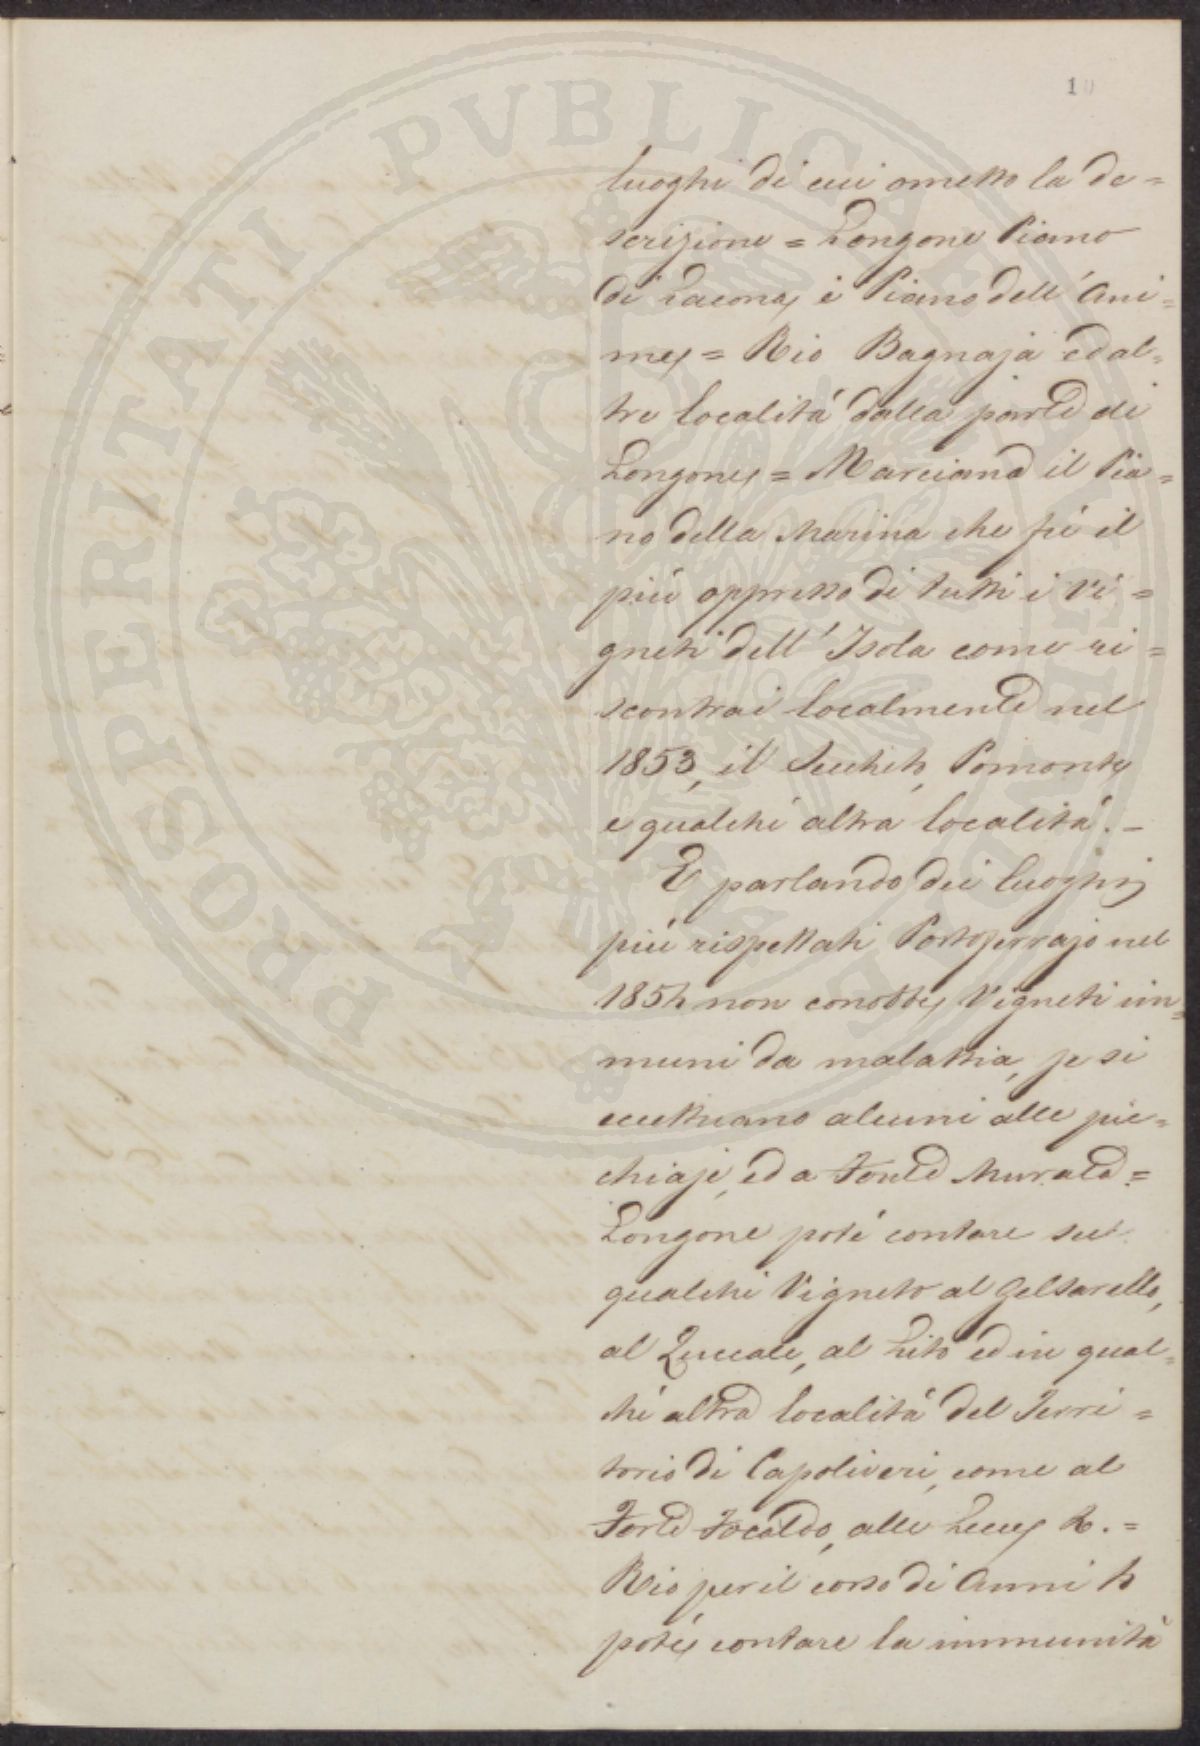 10
luoghi di cui ometto la de=
scrizione = Longone Piano
di Lacona, e Piano dell'Ani=
me, = Rio Bagnaja ed al=
tre località dalla parte di
Longone, = Marciana il Pia=
no della Marina che fù il
più oppresso di tutti i Vi=
gneti dell'Isola come ri=
scontrai localmente nel
1853, il Secchito, Pomonte,
e qualche altra località. -
E parlando dei luoghi
più rispettati Portoferrajo nel
1854 non conobbe, Vigneti im=
muni da malattia, se si
eccettuano alcuni alle pic=
chiaje, ed a Fonte Murata =
Longone poté contare su
qualche Vigneto al Gelsarello,
al Zuccale, al Lito ed in qual=
che altra località del Terri=
torio di Capoliveri, come al
Forte Focaldo, alle =
Rio per il corso di Anni 4
poté, contare la immunità
PROSPERITATI PVBLICAE AVGENDAE